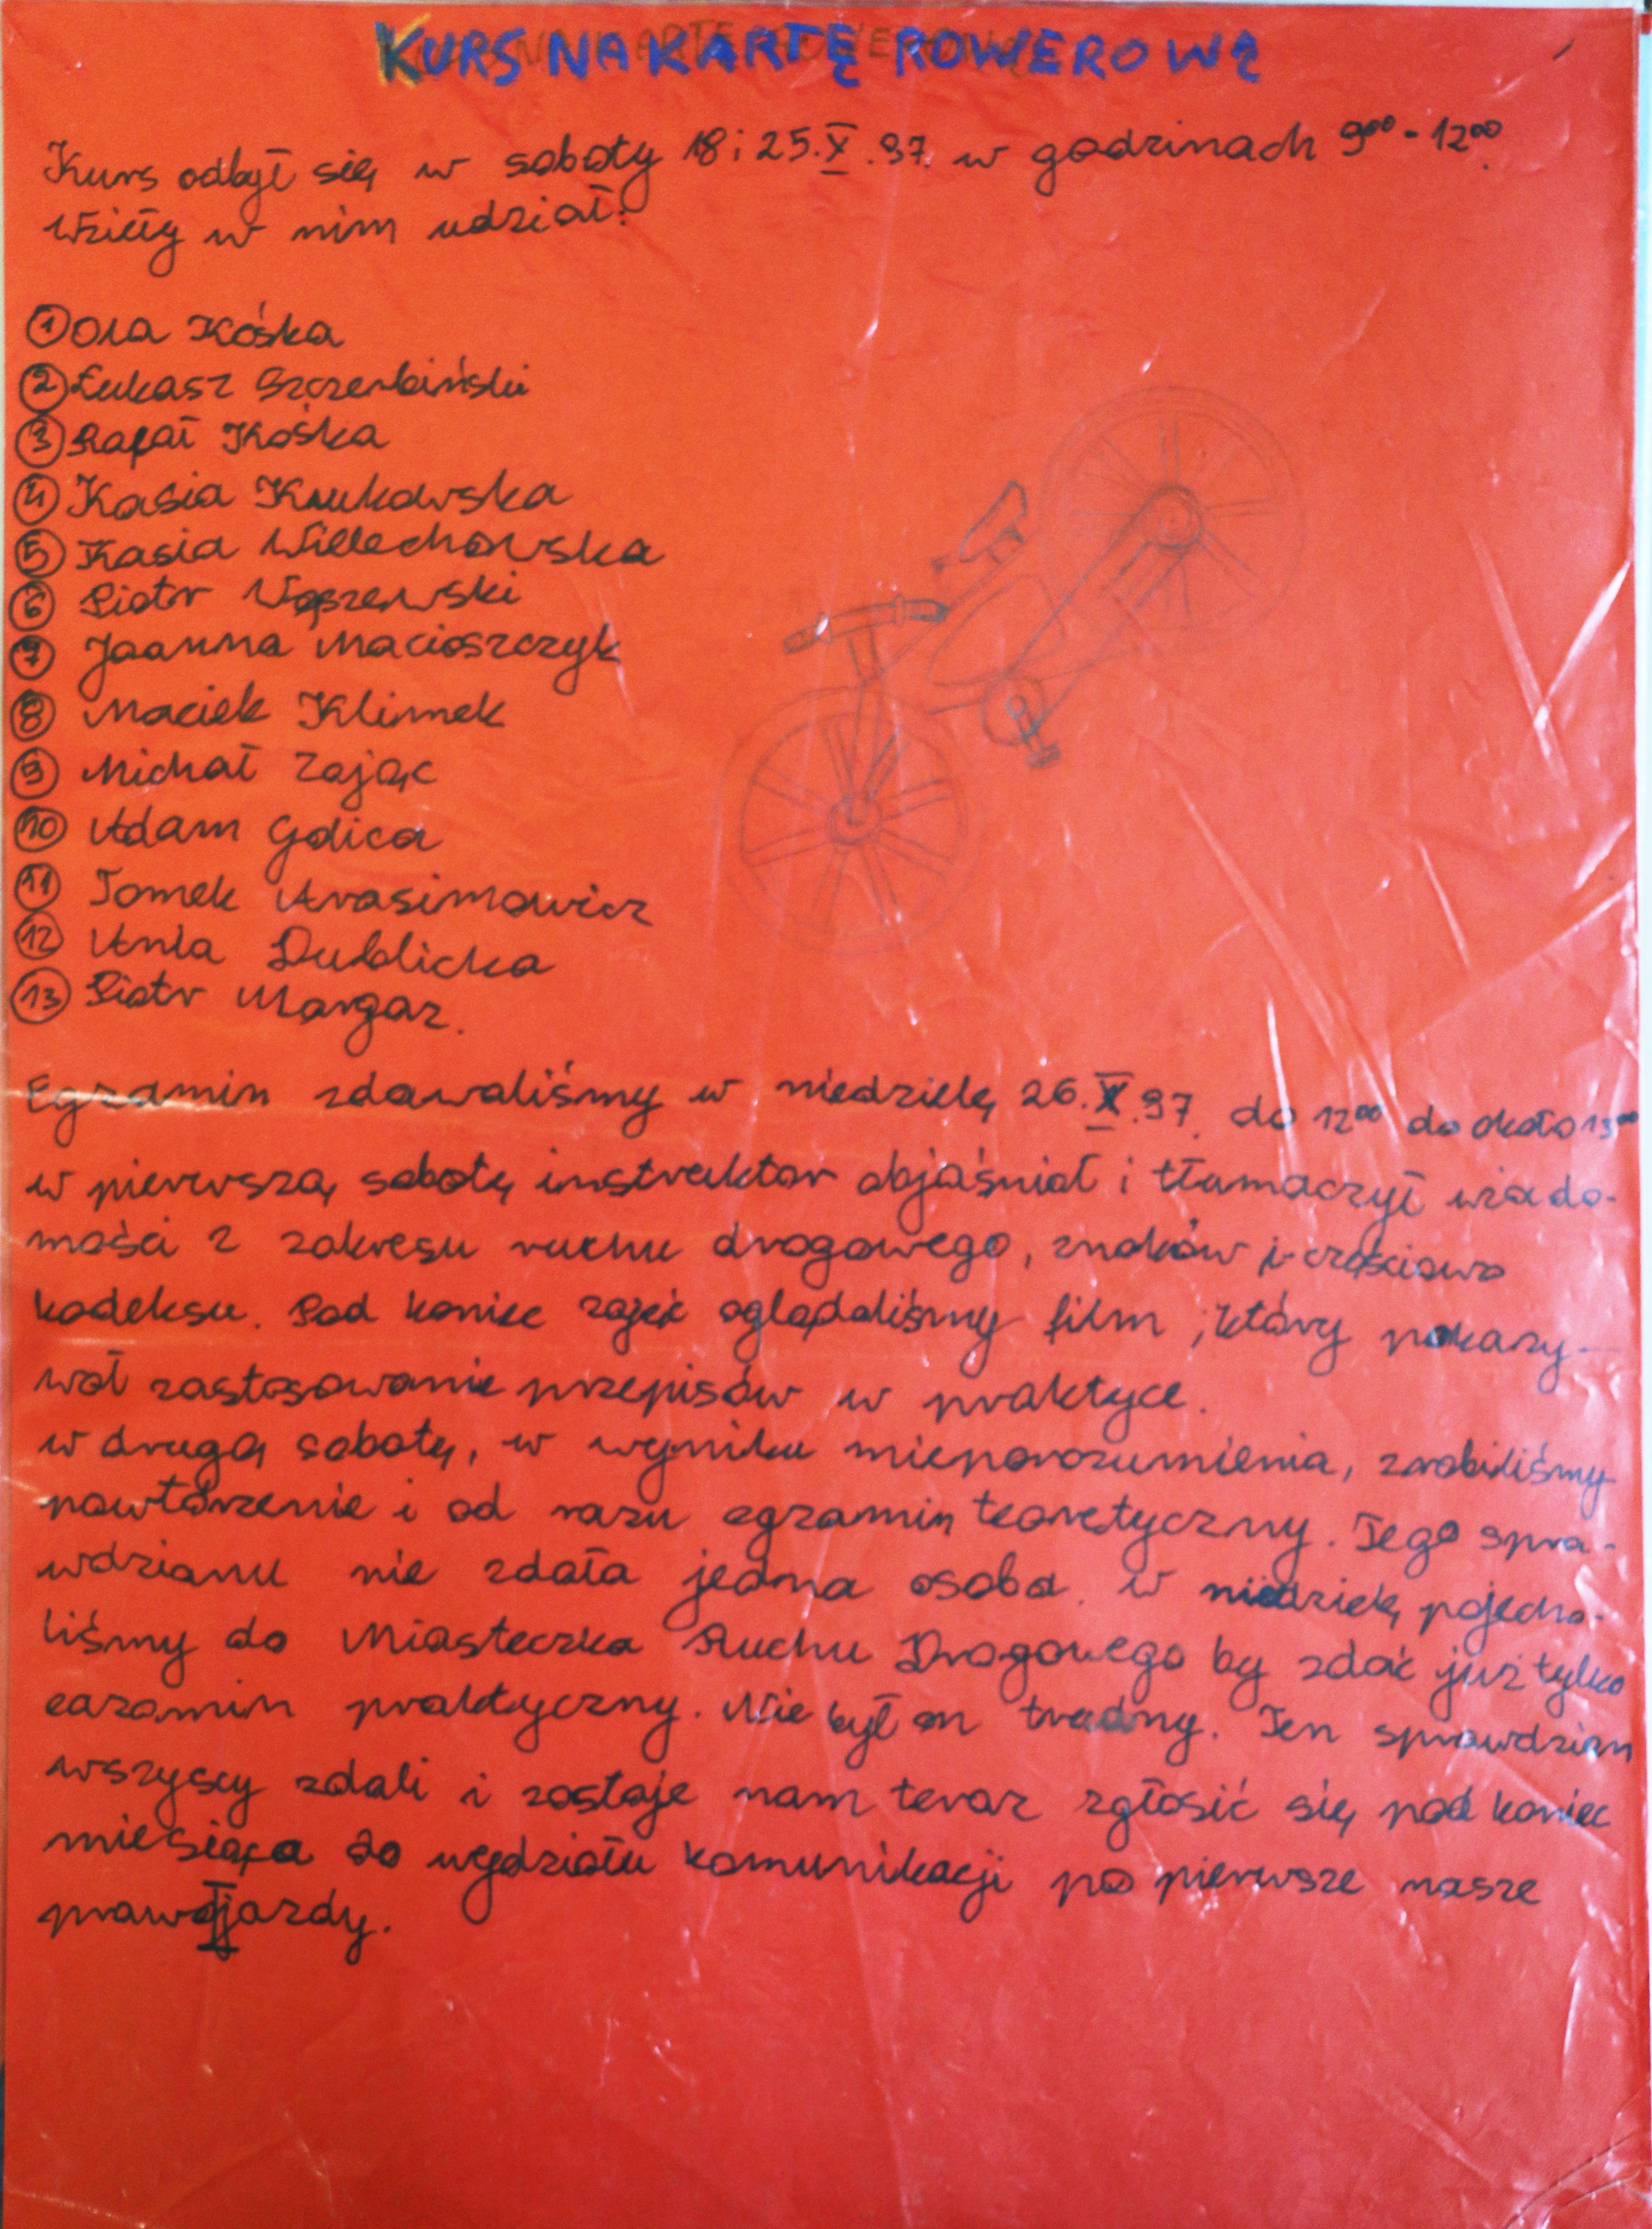 KURS NA KARTĘ ROWEROWĄ
Kurs odbył się w soboty 18 i 25.X.97. w godzinach 9⁰⁰-12⁰⁰.
Wzięły w nim udział:
① Ola Kośka
② Łukasz Szczerbiński
③ Rafał Kośka
④ Kasia Krukowska
⑤ Kasia Willechowska
⑥ Piotr
⑦ Joanna Macioszczyk
⑧ Maciek Klimek
⑨ Michał Zając
⑩ Adam Golica
⑪ Tomek Arasimowicz
⑫ Ania Dublicka
⑬ Piotr Margaz.
Egzamin zdawaliśmy w niedzielę 26.X.97. do 12⁰⁰ do około 13⁰⁰
w pierwszą sobotę instruktor objaśniał i tłumaczył wiado-
mości z zakresu ruchu drogowego, znaków i częściowo
kodeksu. Pod koniec zajęć oglądaliśmy film, który pokazy-
wał zastosowanie przepisów w praktyce.
w drugą sobotę, w wyniku nieporozumienia, zrobiliśmy
powtórzenie i od razu egzamin teoretyczny. Tego spra-
wdzianu nie zdała jedna osoba. w niedzielę pojecha-
liśmy do Miasteczka Ruchu Drogowego by zdać już tylko
eazamin praktyczny. Nie był on trudny. Ten sprawdzian
wszyscy zdali i zostaje nam teraz zgłosić się pod koniec
miesiąca do wydziału komunikacji po pierwsze nasze
prawo jazdy.